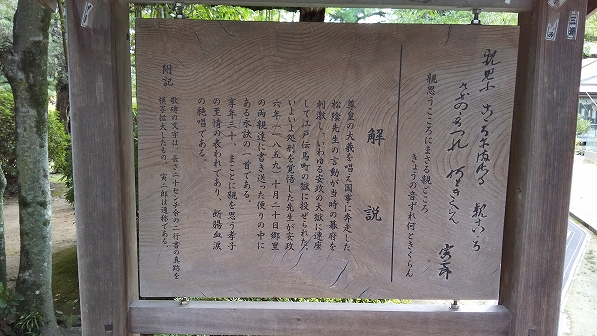 親思ふ こころにまさる 親ごころ
けふのおとずれ 何ときくらん
寅二郎
親思うこころにまさる親ごころ
きょうの音ずれ何ときくらん
解説
尊皇の大義を唱え国事に奔走した
松陰先生の言動が当時の幕府を
刺激し、いわゆる安政の大獄に連座
して江戸伝馬町の獄に投ぜられた。
いよいよ処刑を覚悟した先生が安政
六年(一八五九)十月二十日郷里
の両親達に書き送った便りの中に
ある永訣の一首である。
享年三十、まことに親を思う孝子
の至情の表われであり、断腸血涙
の絶唱である。
附記
歌碑の文字は、長さ二十センチ余の二行書の真跡を
模写拡大したもの。寅二郎は通称である。